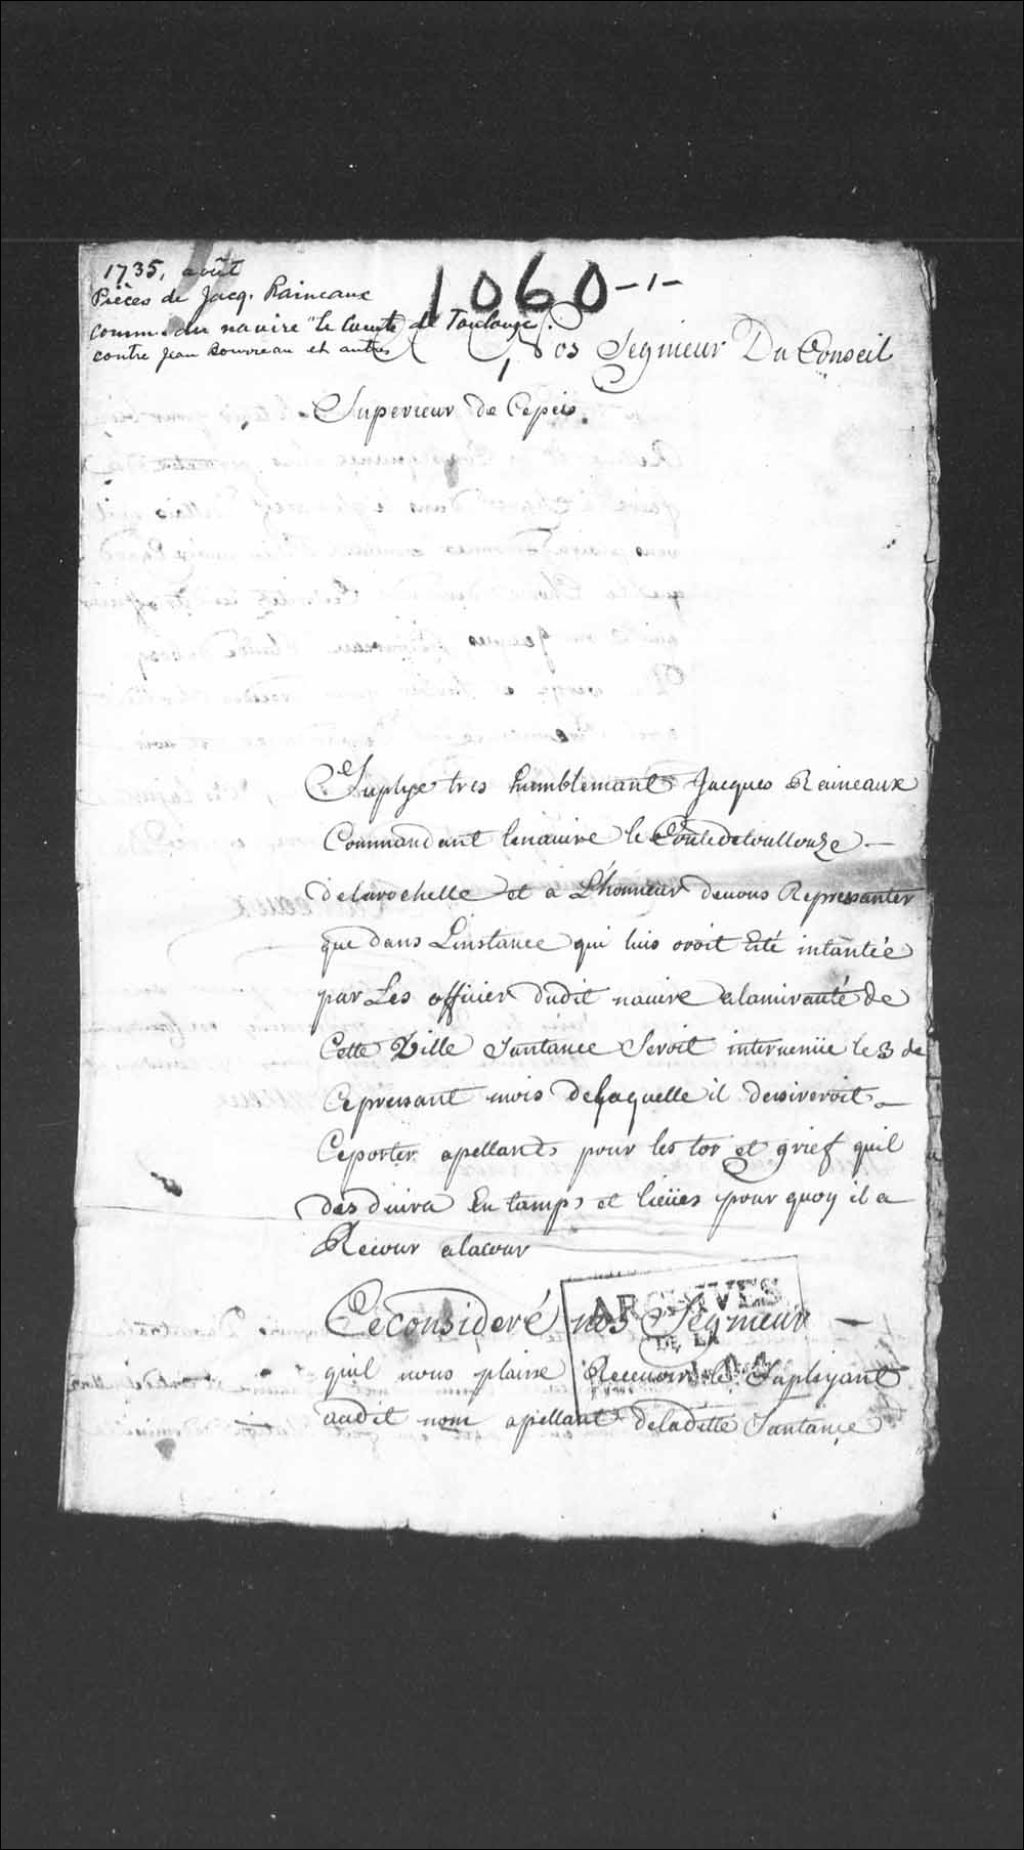 1735, août
Pièces de Jacq. Raineaux
comm. du navire "le Comte de Toulouse".
contre Jean Bouvreau et autres
1060-1-
A Nos Segnieur Du Conseil
Superieur de Cepeis.
Suplye tres humblemant Jacques Reineaux
Commandant lenauire le Contedetoullouze
delarochelle et a Lhonneur deuous Repressanter
que dans Linstance qui luis avoit Eté intantée
par Les officier dudit nauire alamirauté de
Cette Ville Santance Seroit interuenüe le 3 de
Cepressant mois delaquelle il dessireroit
Ceporter apellant pour les tor et grief quil
desduira En tamps et lieües pour quoy il a
Recour alacour
Ceconsideré nos Segnieur
quil nous plaisse Receuoir le Supliyant
audit nom apellant deladitte Santance
ARCHIVES
DE LA